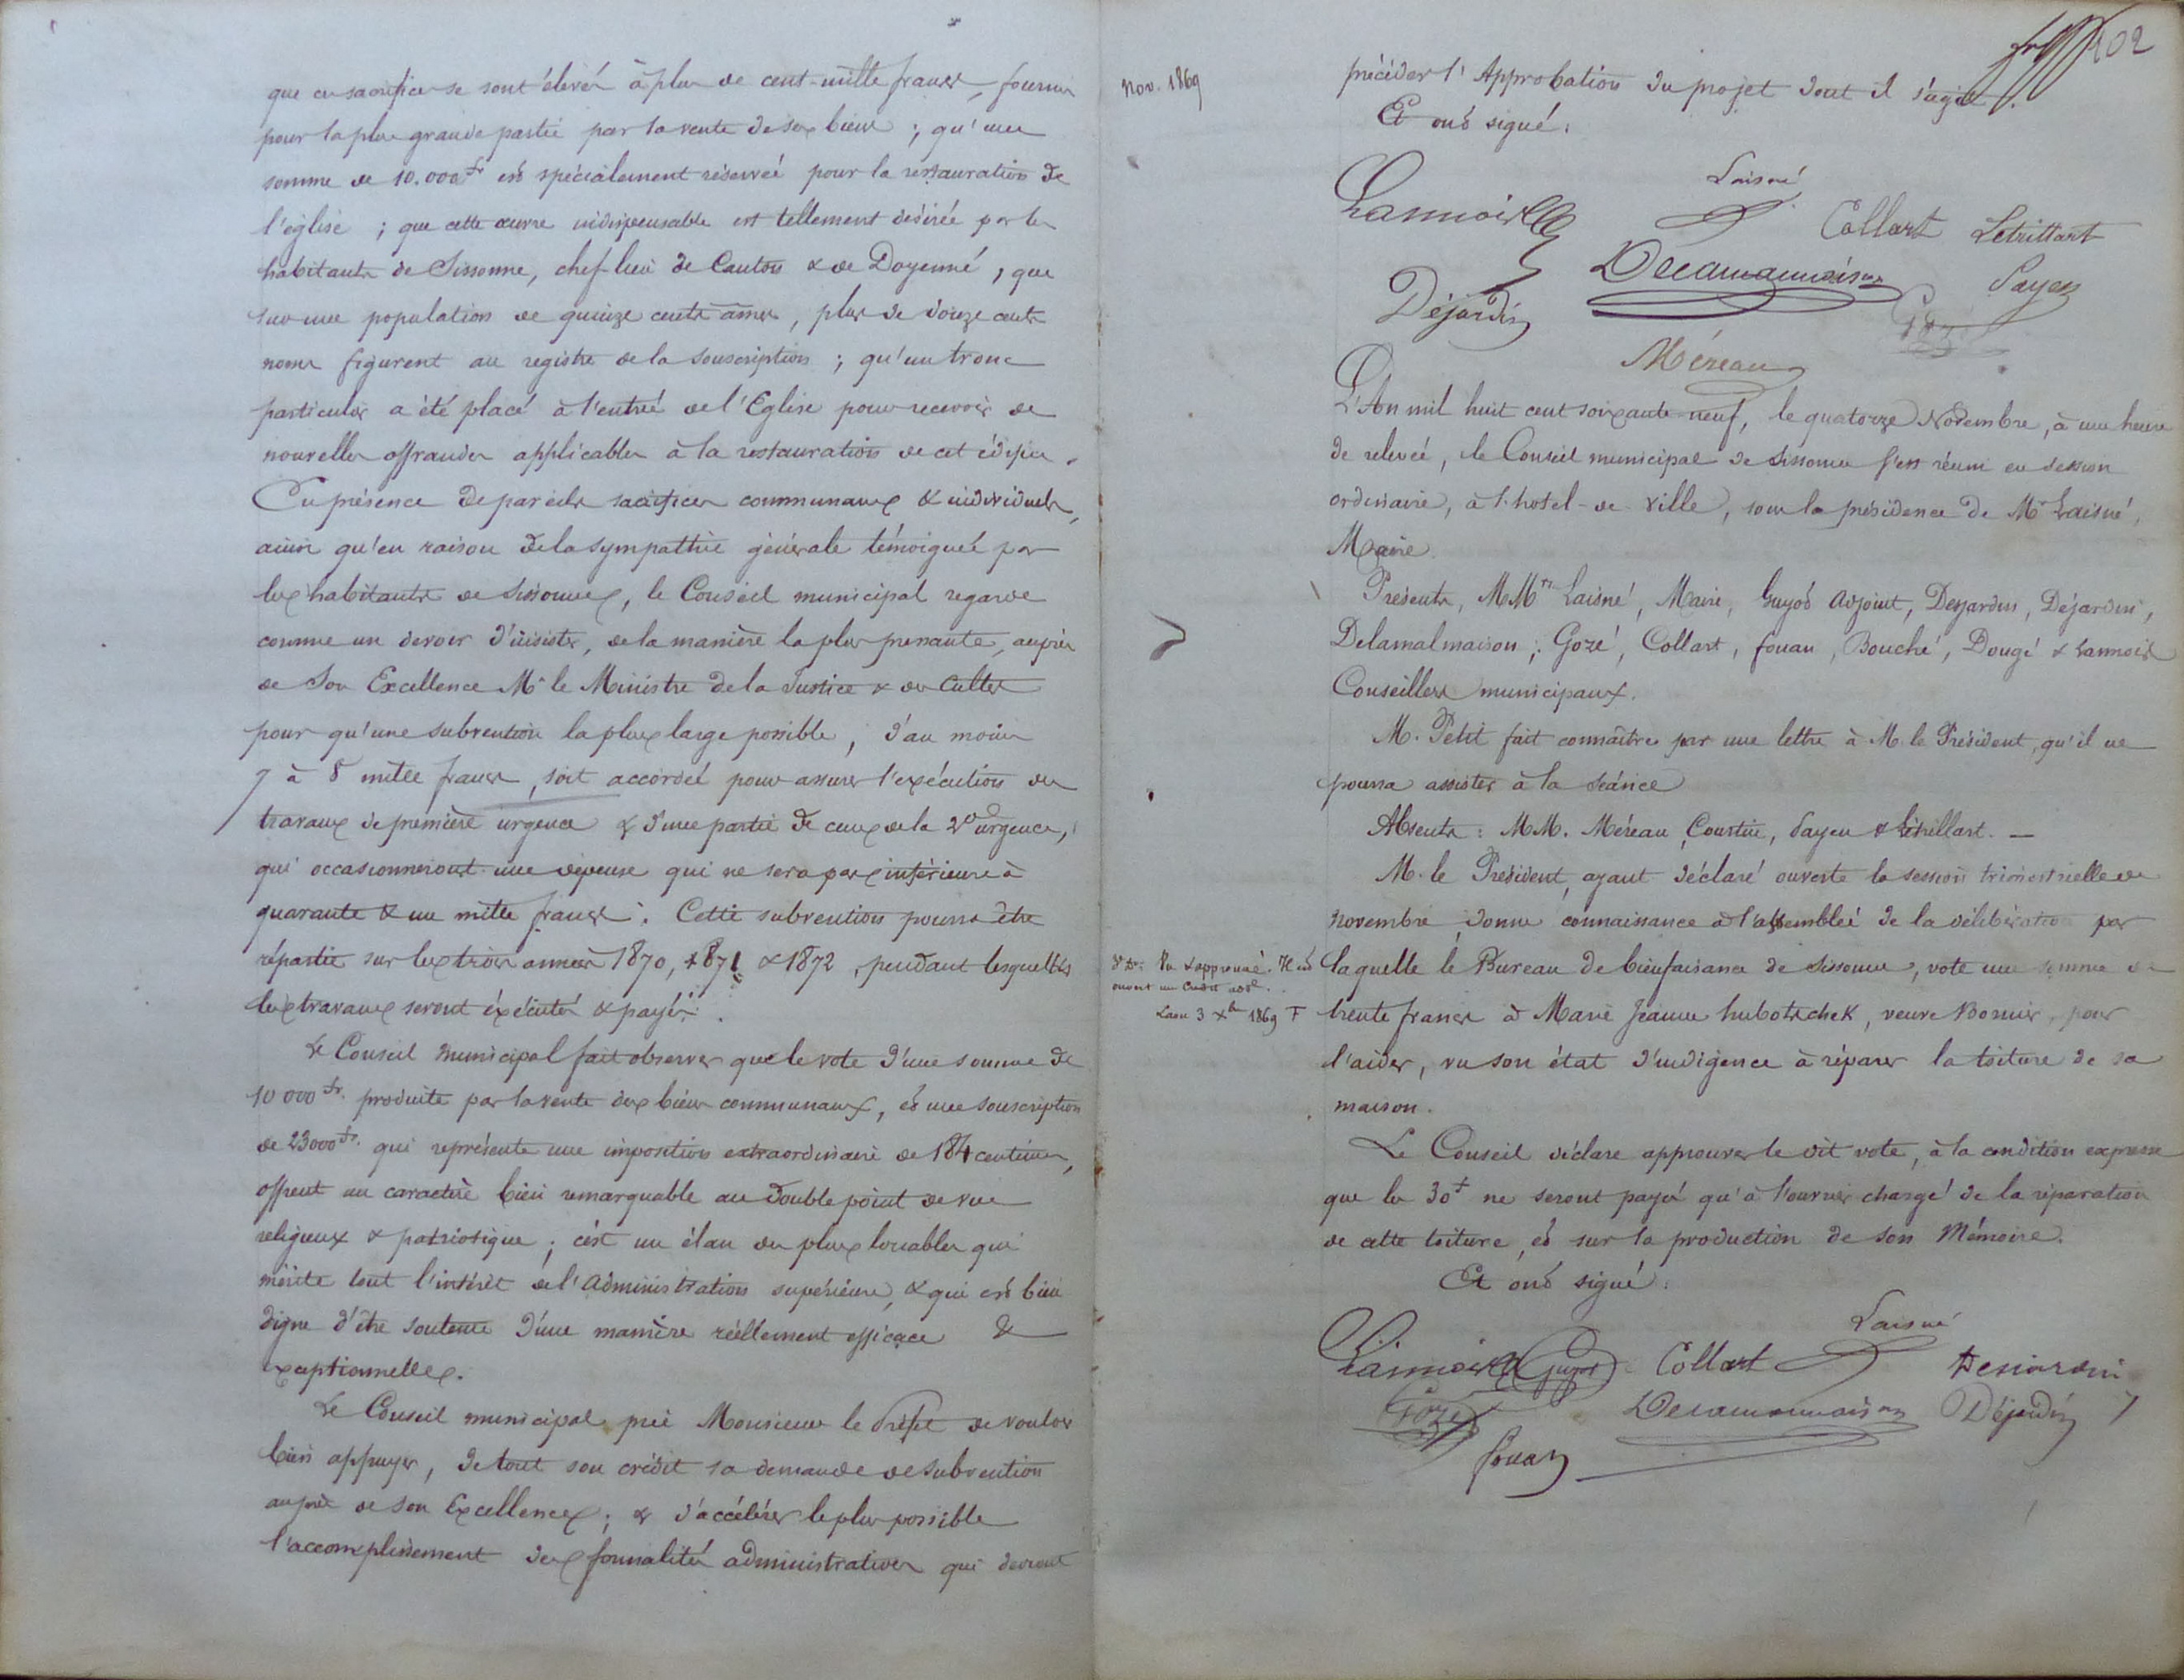 que ces sacrifices se sont élevés à plus de cent-mille francs, fournis
pour la plus grande partie par la vente de ses biens ; qu'une
somme de 10.000 fr est spécialement réservée pour la restauration de
l'église ; que cette œuvre indispensable est tellement désirée par les
habitants de Sissonne, chef lieu de Canton & de Doyenné, que
sur une population de quinze cents âmes, plus de douze cents
noms figurent au registre de la souscription ; qu'un tronc
particulier a été placé à l'entrée de l'Eglise pour recevoir de
nouvelles offrandes applicables à la restauration de cet édifice.
En présence de pareils sacrifices communaux & individuels,
ainsi qu'en raison de la sympathie générale témoignée par
les habitants de Sissonne, le Conseil municipal regarde
comme un devoir d'insister, de la manière la plus pressante, auprès
de Son Excellence Mr le Ministre de la Justice & des Cultes
pour qu'une subvention la plus large possible, d'au moins
7 à 8 mille francs, soit accordée pour assurer l'exécution des
travaux de première urgence & d'une partie de ceux de la 2e urgence,
qui occasionneront une dépense qui ne sera pas inférieure à
quarante & un mille francs. Cette subvention pourra être
répartie sur les trois années 1870, 1871 & 1872, pendant lesquelles
les travaux seront éxécutés & payés.
Le Conseil municipal fait observer que le vote d'une somme de
10 000 fr. produite par la vente des biens communaux, et une souscription
de 23000 fr. qui représente une imposition extraordinaire de 184 centimes,
offrent un caractère bien remarquable au double point de vue
religieux & patriotique ; c'est un élan des plus louables qui
mérite tout l'intérêt de l'Administration supérieure, & qui est bien
digne d'être soutenu d'une manière réellement efficace &
exceptionnelle.
Le Conseil municipal prie Monsieur le Préfet de vouloir
bien appuyer, de tout son crédit sa demande de subvention
auprès de Son Excellence ; & d'accélérer le plus possible
l'accomplissement des formalités administratives qui devront
Nov. 1869
102
précéder l'Approbation du projet dont il s'agit.
Et ont signé :
Laisné
Lannois Collart Letrillart
Delamalmaison Payen
Déjardin
Méreau
L'An mil huit cent soixante neuf, le quatorze Novembre, à une heure
de relevée, le Conseil municipal de Sissonne s'est réuni en session
ordinaire, à l'hotel-de-ville, sous la présidence de Mr Laisné,
Maire.
Présents, MMrs Laisné, Maire, Guyot adjoint, Desjardins, Déjardin,
Delamalmaison, Gozé, Collart, fouan, Bouché, Dougé & Lannois
Conseillers municipaux.
M. Petit fait connaître par une lettre à M. le Président, qu'il ne
pourra assister à la séance
Absents : MM. Méreau, Courtin, Payen & Létrillart. —
M. le Président, ayant déclaré ouverte la session trimestrielle de
novembre donne connaissance à l'assemblée de la délibération par
Vu & approuvé. Il est
ouvert un crédit addl.
Laon 3 Xbre 1869
laquelle le Bureau de bienfaisance de Sissonne, vote une somme de
trente francs à Marie Jeanne hubotschek, veuve Bonnier, pour
l'aider, vu son état d'indigence à réparer la toiture de sa
maison.
Le Conseil déclare approuver le dit vote, à la condition expresse
que les 30 f ne seront payés qu'à l'ouvrier chargé de la réparation
de cette toiture, et sur la production de son Mémoire.
Et ont signé :
Laisné
Lannois Guyot Collart Desjardins
Gozé Delamalmaison Déjardin
fouan